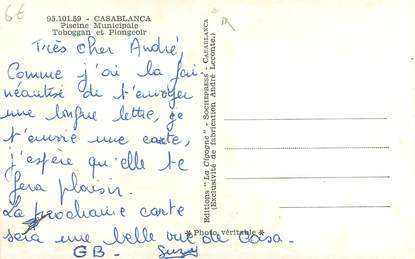 6€
95.101.59 - CASABLANCA
Piscine Municipale
Toboggan et Plongeoir
Très cher André,
Comme j'ai la fai-
néantise de t'envoyer
une longue lettre, je
t'envoie une carte,
j'espère qu'elle te
fera plaisir.
La prochaine carte
sera une belle vue de Casa.
GB - Suzy
Editions "La Cigogne" - SOCHEPRESS - CASABLANCA
(Exclusivité de fabrication André Leconte.)
*Photo véritable*